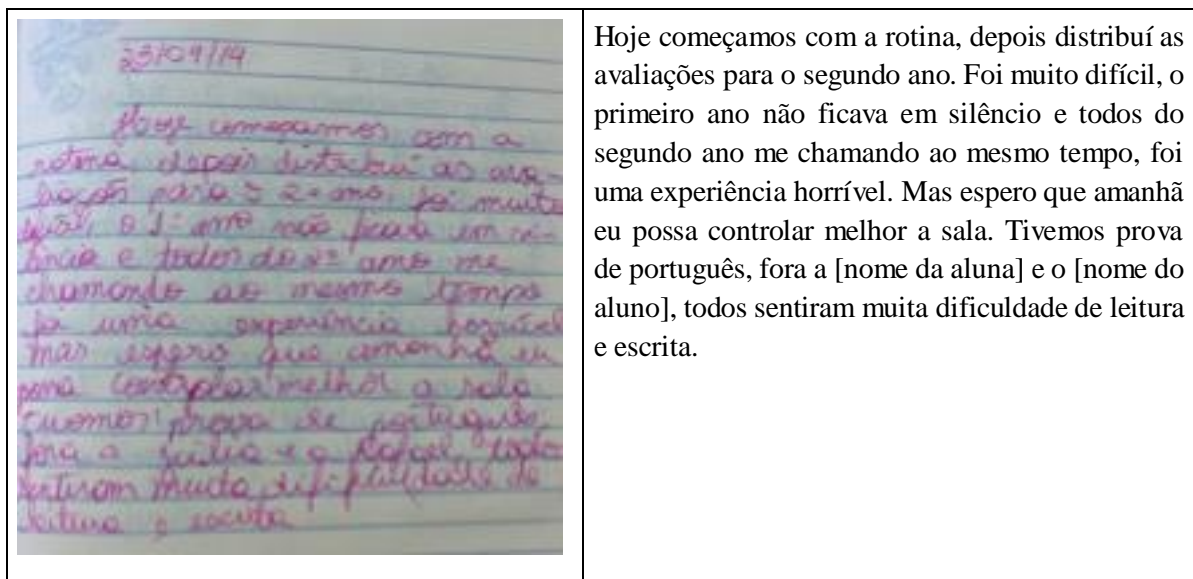 23/09/14
Hoje começamos com a
rotina depois distribuí as ava-
liações para o 2º ano, foi muito
difícil, o 1º ano não ficava em si-
lêncio e todos do 2º ano me
chamando ao mesmo tempo
foi uma experiência horrível
mas espero que amanhã eu
possa controlar melhor a sala
tivemos prova de português,
fora a Júlia e o Rafael, todos
sentiram muita dificuldade de
leitura e escrita
Hoje começamos com a rotina, depois distribuí as
avaliações para o segundo ano. Foi muito difícil, o
primeiro ano não ficava em silêncio e todos do
segundo ano me chamando ao mesmo tempo, foi
uma experiência horrível. Mas espero que amanhã
eu possa controlar melhor a sala. Tivemos prova
de português, fora a [nome da aluna] e o [nome do
aluno], todos sentiram muita dificuldade de leitura
e escrita.